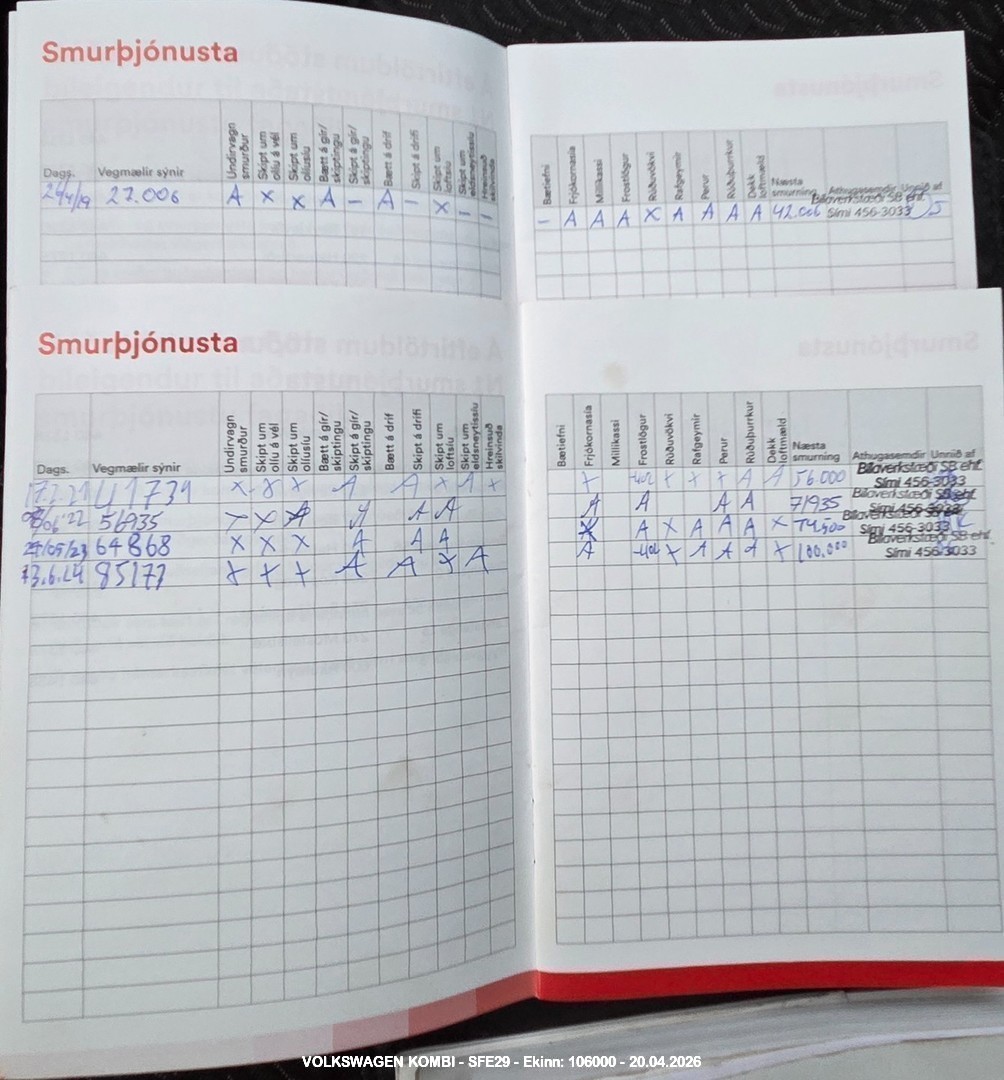 Smurþjónusta
Dags. Vegmælir sýnir Undirvagn smurður Skipt um olíu á vél Skipt um olíusíu Bætt á gír/ skiptingu Skipt á gír/ skiptingu Bætt á drif Skipt á drifi Skipt um loftsíu Skipt um eldsneytissíu Hreinsuð skilvinda
24/4/19 27.006 A X X A – A – X – –
Bætiefni Frjókornasía Millikassi Frostlögur Rúðuvökvi Rafgeymir Perur Rúðuþurrkur Dekk loftmæld Næsta smurning Athugasemdir Unnið af
Bílaverkstæði SB ehf.
– A A A X A A A A 42.006 Sími 456-3033
Smurþjónusta
Dags. Vegmælir sýnir Undirvagn smurður Skipt um olíu á vél Skipt um olíusíu Bætt á gír/ skiptingu Skipt á gír/ skiptingu Bætt á drif Skipt á drifi Skipt um loftsíu Skipt um eldsneytissíu Hreinsuð skilvinda
17.2.21 41739 X X X A A X A X
/06'22 56935 X A A A A
24/05/23 64868 X X X A A A
13.6.24 85177 X X X A A X A
Bætiefni Frjókornasía Millikassi Frostlögur Rúðuvökvi Rafgeymir Perur Rúðuþurrkur Dekk loftmæld Næsta smurning Athugasemdir Unnið af
Bílaverkstæði SB ehf.
X -40 X X X A A 56.000 Sími 456-3033
Bílaverkstæði SB ehf.
A A A A 71935 Sími 456-3033
Bílaverkstæði SB ehf.
X A X A A A X 79.500 Sími 456-3033
Bílaverkstæði SB ehf.
A -40 X A A A X 100.000 Sími 456-3033
VOLKSWAGEN KOMBI - SFE29 - Ekinn: 106000 - 20.04.2026